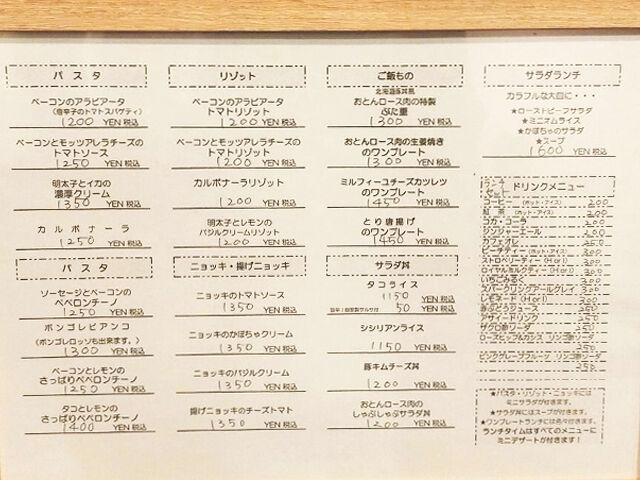 パスタ
ベーコンのアラビアータ
(唐辛子のトマトスパゲティ)
1200 YEN 税込
ベーコンとモッツアレラチーズの
トマトソース
1250 YEN 税込
明太子とイカの
濃厚クリーム
1350 YEN 税込
カルボナーラ
1250 YEN 税込
パスタ
ソーセージとベーコンの
ペペロンチーノ
1250 YEN 税込
ボンゴレビアンコ
(ボンゴレロッソも出来ます。)
1300 YEN 税込
ベーコンとレモンの
さっぱりペペロンチーノ
1250 YEN 税込
タコとレモンの
さっぱりペペロンチーノ
1400 YEN 税込
リゾット
ベーコンのアラビアータ
トマトリゾット
1200 YEN 税込
ベーコンとモッツアレラチーズの
トマトリゾット
1200 YEN 税込
カルボナーラリゾット
1200 YEN 税込
明太子とレモンの
バジルクリームリゾット
1200 YEN 税込
ニョッキ・揚げニョッキ
ニョッキのトマトソース
1350 YEN 税込
ニョッキのかぼちゃクリーム
1350 YEN 税込
ニョッキのバジルクリーム
1350 YEN 税込
揚げニョッキのチーズトマト
1350 YEN 税込
ご飯もの
北海道豚丼風
おとんロース肉の特製
ぶた重
1300 YEN 税込
おとんロース肉の生姜焼き
のワンプレート
1300 YEN 税込
ミルフィーユチーズカツレツ
のワンプレート
1450 YEN 税込
とり唐揚げ
のワンプレート
1450 YEN 税込
サラダ丼
タコライス
1150 YEN 税込
50 YEN 税込
シシリアンライス
1150 YEN 税込
豚キムチーズ丼
1200 YEN 税込
おとんロース肉の
しゃぶしゃぶサラダ丼
1200 YEN 税込
サラダランチ
カラフルな大皿に・・・
★ローストビーフサラダ
★ミニオムライス
★かぼちゃのサラダ
★スープ
1600 YEN 税込
ドリンクメニュー
コーヒー (ホット・アイス) 200
紅茶 (ホット・アイス) 200
コカ・コーラ 200
ジンジャーエール 200
カフェオレ 250
ピーチティー (ホット・アイス) 300
ストロベリーティー (Hot) 300
ロイヤルミルクティー (Hot) 300
いちごみるく 300
スパークリングアールグレイ 300
レモネード (Hot) 300
赤ぶどうジュース 250
アサイードリンク 250
ザクロ酢ソーダ 250
ローズヒップ&カシス リンゴ酢ソーダ
250
ピンクグレープフルーツ リンゴ酢ソーダ
250
★パスタ・リゾット・ニョッキには
ミニサラダが付きます。
★サラダ丼にはスープが付きます。
★ワンプレートランチには色々付きます。
ランチタイムはすべてのメニューに
ミニデザートが付きます!